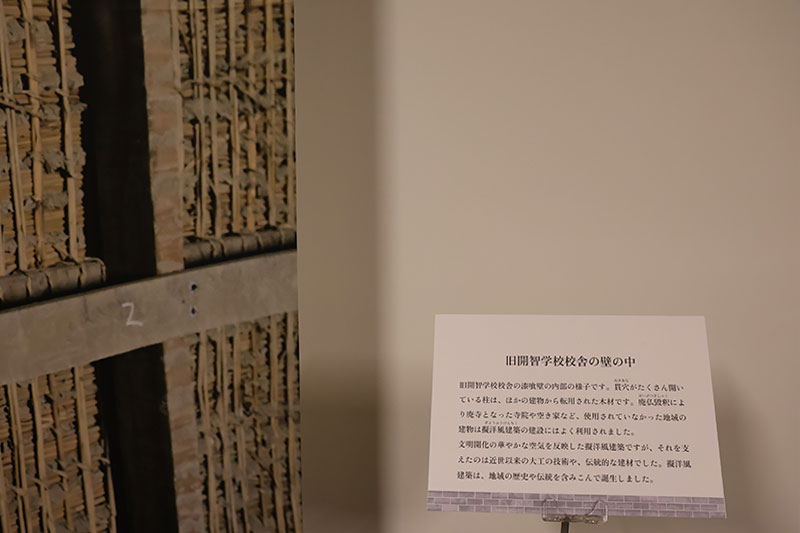 2
旧開智学校校舎の壁の中
旧開智学校校舎の漆喰壁の内部の様子です。貫穴がたくさん開い
ている柱は、ほかの建物から転用された木材です。廃仏毀釈によ
り廃寺となった寺院や空き家など、使用されていなかった地域の
建物は擬洋風建築の建設にはよく利用されました。
文明開化の華やかな空気を反映した擬洋風建築ですが、それを支
えたのは近世以来の大工の技術や、伝統的な建材でした。擬洋風
建築は、地域の歴史や伝統を含みこんで誕生しました。